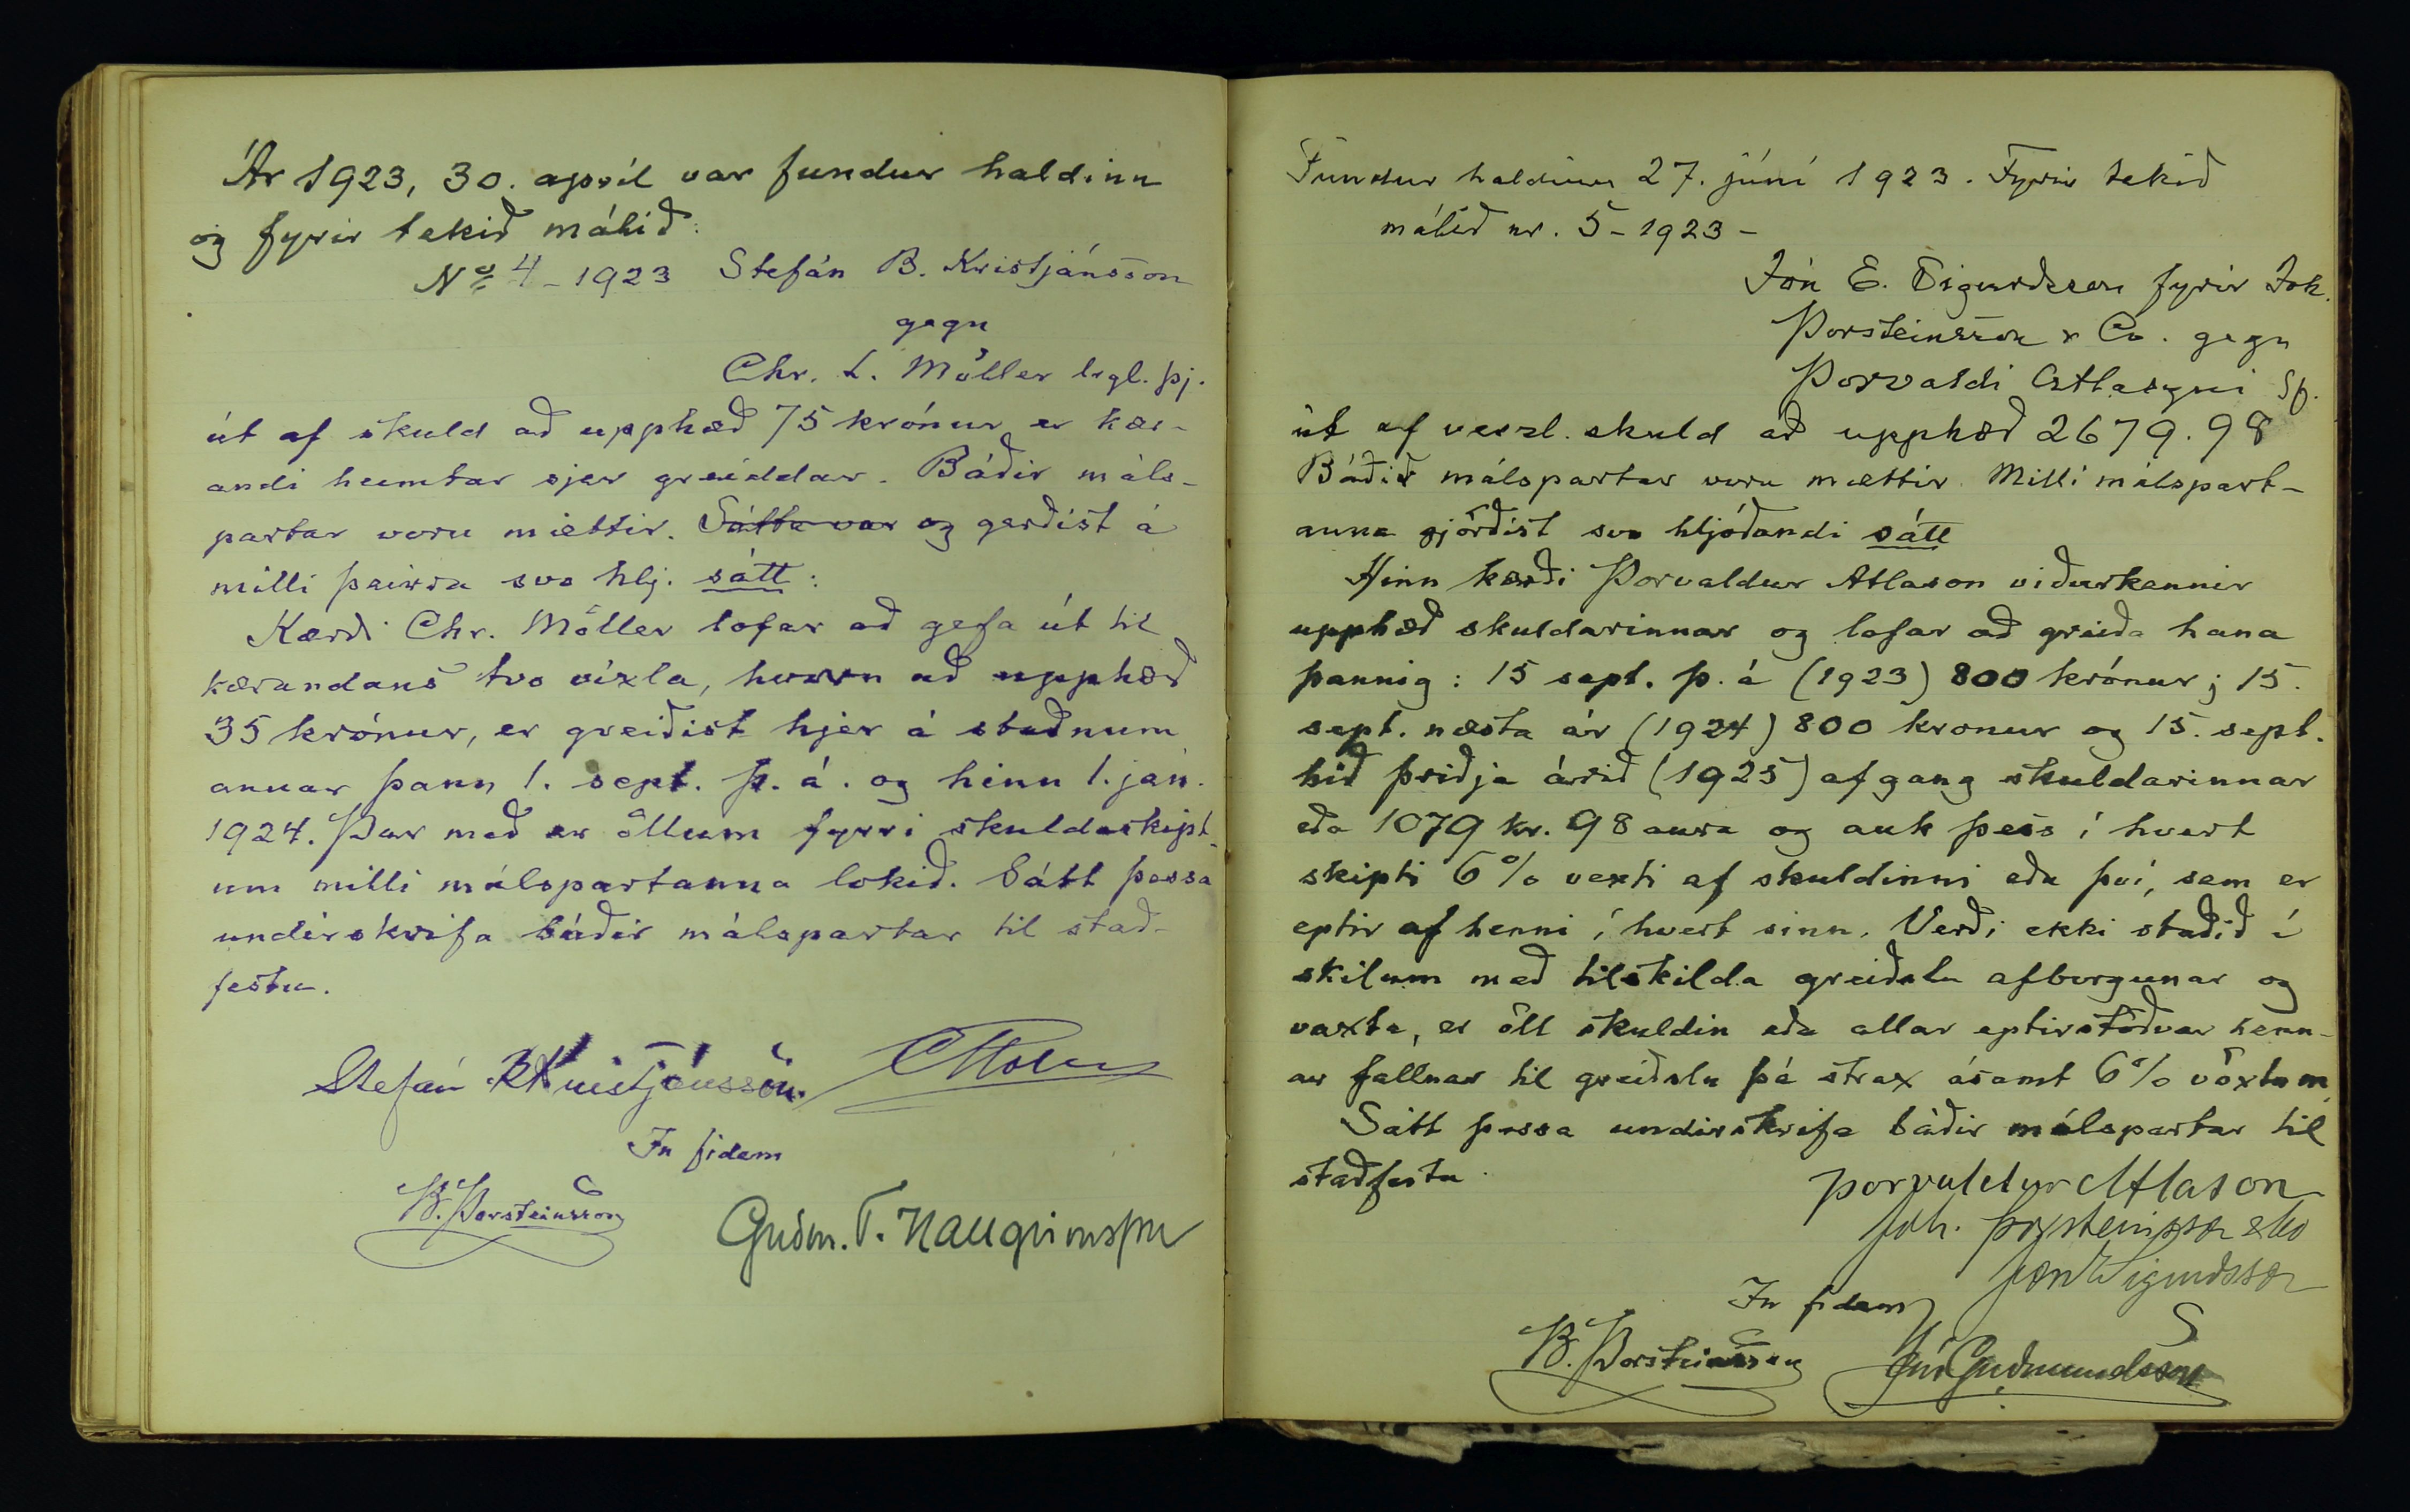 Ár 1923, 30. apríl var fundur haldinn
og fyrir tekið málið:
No 4 - 1923 Stefán B. Kristjánsson
gegn
Chr. L. Möller lrgl. þj.
út af skuld að upphæð 75 krónur er kær-
andi heimtar sjer greiddar. Báðir máls-
partar voru mættir. Sátta var og gerðist á
milli þeirra svo hlj. sátt:
Kærði Chr. Möller lofar að gefa út til
kærandans tvo víxla, hvorn að upphæð
35 krónur, er greiðist hjer á staðnum
annar þann 1. sept. þ. á. og hinn 1. jan.
1924. Þar með er öllum fyrri skuldaskipt-
um milli málspartanna lokið. Sátt þessa
undirskrifa báðir málspartar til stað-
festu.
Stefán B Kristjánsson.
In fidem
B. Þorsteinsson
Guðm. T. Hallgrímsson
Fundur haldinn 27. júní 1923. Fyrir tekið
málið nr. 5 - 1923 -
Jón E. Sigurðsson fyrir Joh.
Þorsteinsson & Co. gegn
Þorvaldi Atlasyni Sf.
út af verzl. skuld að upphæð 2679.98
Báðir málspartar voru mættir. Milli málspart-
anna gjörðist svo hljóðandi sátt
Hinn kærði Þorvaldur Atlason viðurkennir
upphæð skuldarinnar og lofar að greiða hana
þannig: 15 sept. þ. á (1923) 800 krónur; 15.
sept. næsta ár (1924) 800 kronur og 15. sept.
hið þriðja árið (1925) afgang skuldarinnar
eða 1079 kr. 98 aura og auk þess í hvert
skipti 6% vexti af skuldinni eða því, sem er
eptir af henni í hvert sinn. Verði ekki staðið í
skilum með tilskilda greiðslu afborgunar og
vaxta, er öll skuldin eða allar eptirstöðvar henn-
ar fallnar til greiðslu þá strax ásamt 6% vöxtum.
Sátt þessa undirskrifa báðir málspartar til
staðfestu.
Þorvaldur Atlason
Joh. Þorsteinsson & Co
Jón E Sigurðsson
In fidem
B. Þorsteinsson Jón Guðmundsson